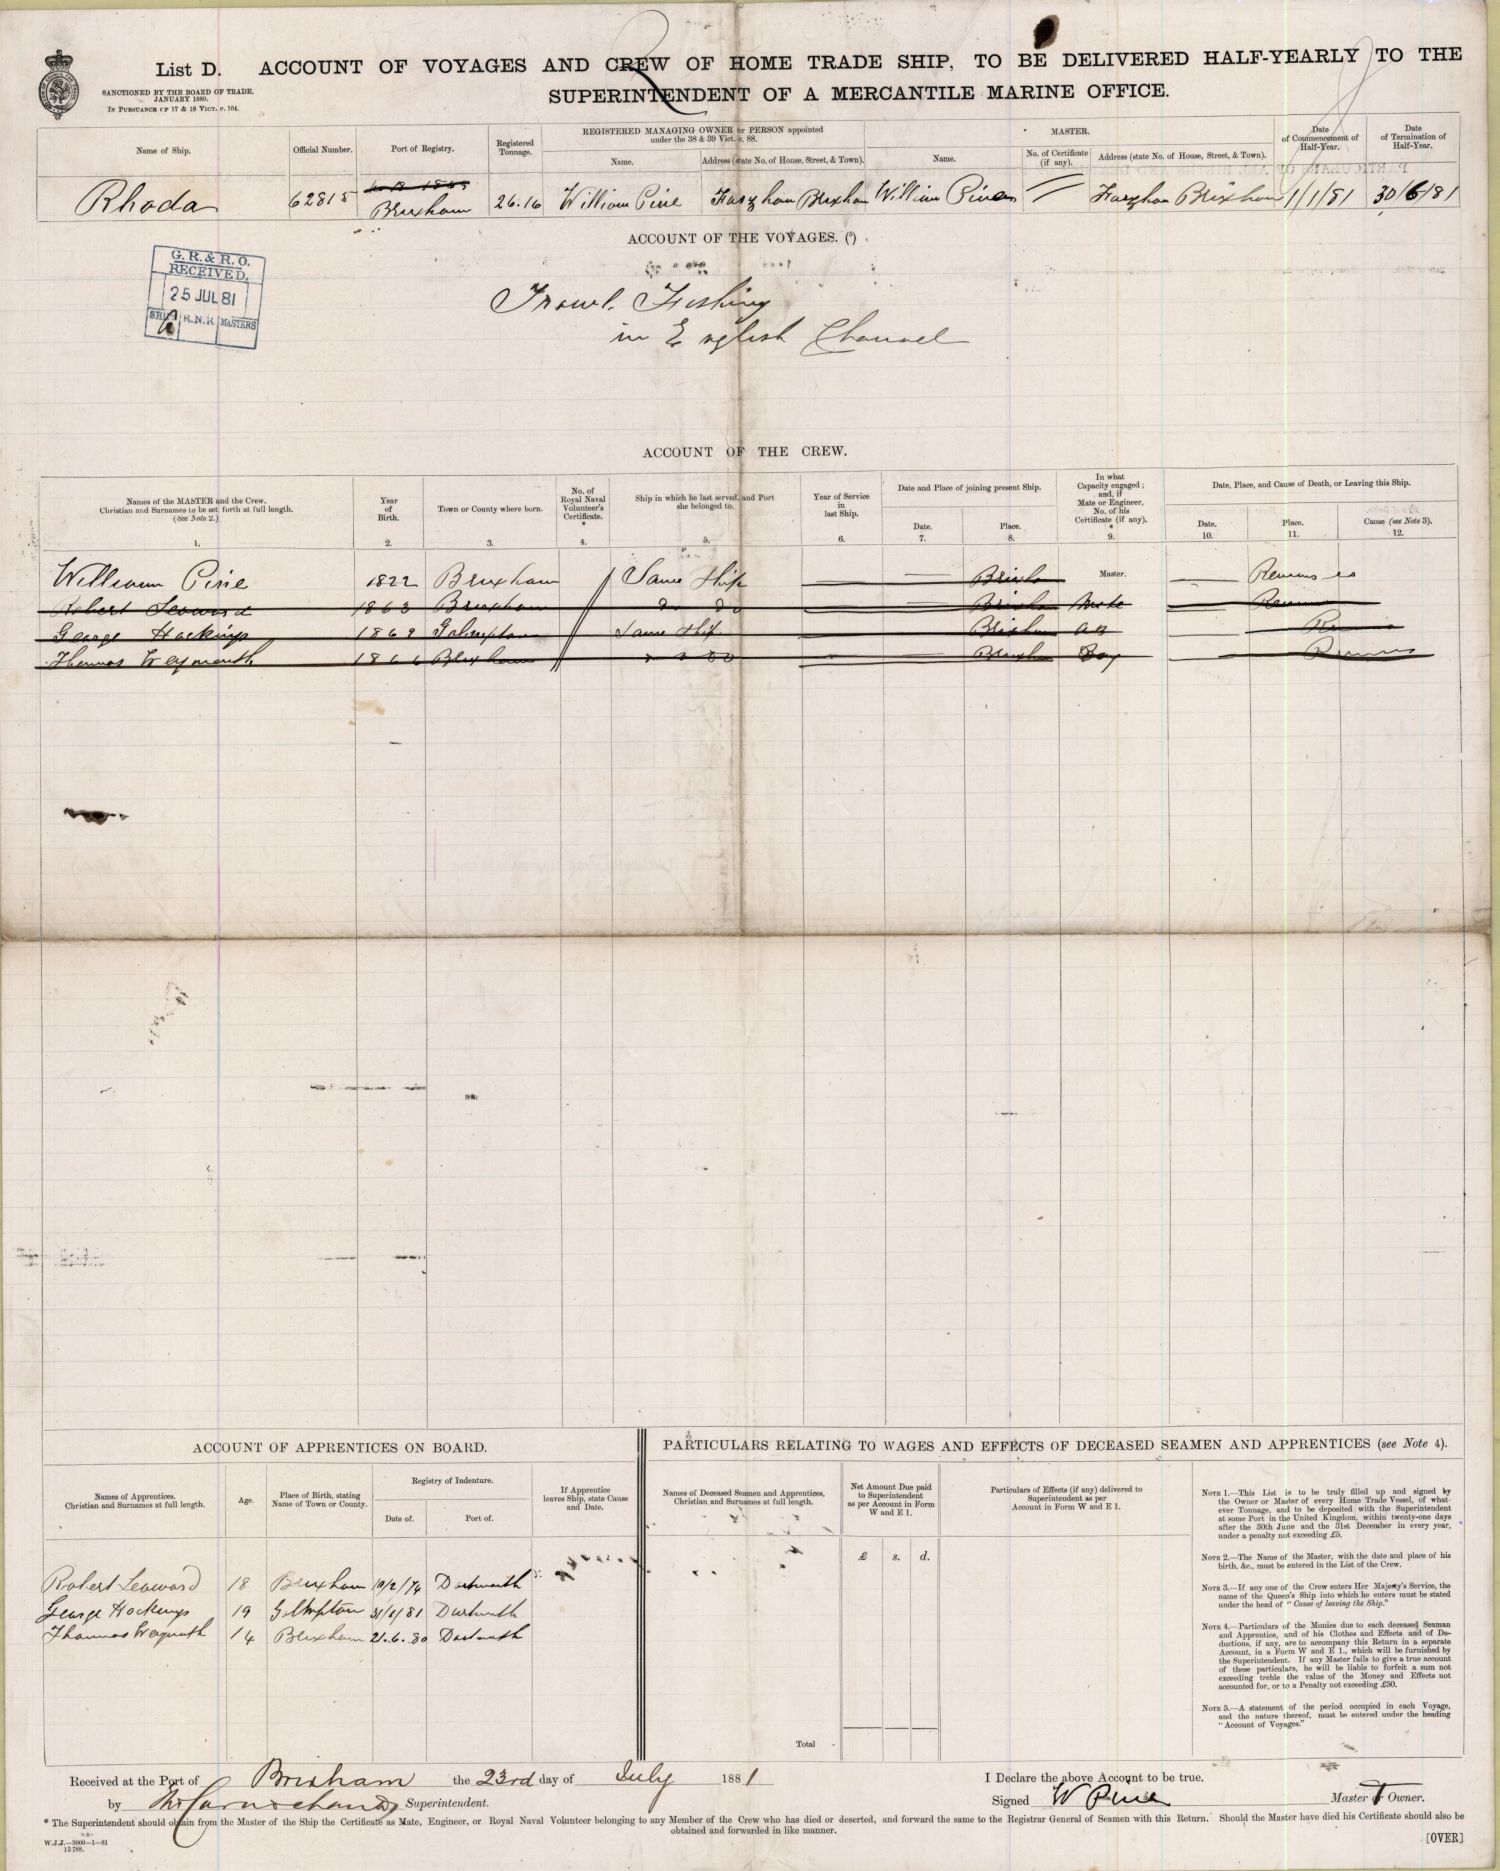 List D. ACCOUNT OF VOYAGES AND CREW OF HOME TRADE SHIP, TO BE DELIVERED HALF-YEARLY TO THE
SUPERINTENDENT OF A MERCANTILE MARINE OFFICE.
SANCTIONED BY THE BOARD OF TRADE,
JANUARY 1880.
IN PURSUANCE OF 17 & 18 VICT. c. 104.
Name of Ship.
Official Number.
Port of Registry.
Registered Tonnage.
REGISTERED MANAGING OWNER or PERSON appointed
under the 38 & 39 Vict. c. 88.
Name.
Address (state No. of House, Street, & Town).
MASTER.
Name.
No. of Certificate (if any).
Address (state No. of House, Street, & Town).
Date of Commencement of Half-Year.
Date of Termination of Half-Year.
Rhoda 62815 Brixham 26.16 William Pine Brixham William Pine Brixham 1/1/81 30/6/81
G.R. & R.O.
RECEIVED.
25 JUL 81
SHIPS R.N.R. MASTERS
ACCOUNT OF THE VOYAGES. (⁵)
Trawl. Fishing
in English Channel
ACCOUNT OF THE CREW.
Names of the MASTER and the Crew.
Christian and Surnames to be set forth at full length.
(See Note 2.)
1.
Year of Birth.
2.
Town or County where born.
3.
No. of Royal Naval Volunteer's Certificate.
*
4.
Ship in which he last served, and Port she belonged to.
5.
Year of Service in last Ship.
6.
Date and Place of joining present Ship.
Date.
7.
Place.
8.
In what Capacity engaged; and, if Mate or Engineer, No. of his Certificate (if any).
*
9.
Date, Place, and Cause of Death, or Leaving this Ship.
Date.
10.
Place.
11.
Cause (see Note 3).
12.
William Pine 1822 Brixham Same Ship Brixham Master. Remains
Robert Seaward 1863 Brixham do do Brixham Mate
George Hockings 186 Galmpton Same Ship Brixham AB
Thomas Weymouth 1866 Brixham do Brixham Boy
ACCOUNT OF APPRENTICES ON BOARD.
Names of Apprentices.
Christian and Surnames at full length.
Age.
Place of Birth, stating Name of Town or County.
Registry of Indenture.
Date of.
Port of.
If Apprentice leaves Ship, state Cause and Date.
Robert Seaward 18 Brixham 10/2/74 Dartmouth
George Hockings 19 Galmpton 81 Dartmouth
Thomas Weymouth 14 Brixham 21.6.80 Dartmouth
PARTICULARS RELATING TO WAGES AND EFFECTS OF DECEASED SEAMEN AND APPRENTICES (see Note 4).
Names of Deceased Seamen and Apprentices,
Christian and Surnames at full length.
Net Amount Due paid to Superintendent as per Account in Form W and E 1.
£ s. d.
Particulars of Effects (if any) delivered to
Superintendent as per
Account in Form W and E 1.
Total
NOTE 1.—This List is to be truly filled up and signed by
the Owner or Master of every Home Trade Vessel, of what-
ever Tonnage, and to be deposited with the Superintendent
at some Port in the United Kingdom, within twenty-one days
after the 30th June and the 31st December in every year,
under a penalty not exceeding £5.
NOTE 2.—The Name of the Master, with the date and place of his
birth, &c., must be entered in the List of the Crew.
NOTE 3.—If any one of the Crew enters Her Majesty's Service, the
name of the Queen's Ship into which he enters must be stated
under the head of "Cause of leaving the Ship."
NOTE 4.—Particulars of the Monies due to each deceased Seaman
and Apprentice, and of his Clothes and Effects and of De-
ductions, if any, are to accompany this Return in a separate
Account, in a Form W and E 1., which will be furnished by
the Superintendent. If any Master fails to give a true account
of these particulars, he will be liable to forfeit a sum not
exceeding treble the value of the Money and Effects not
accounted for, or to a Penalty not exceeding £50.
NOTE 5.—A statement of the period occupied in each Voyage,
and the nature thereof, must be entered under the heading
"Account of Voyages."
Received at the Port of Brixham the 23rd day of July 1881
by Superintendent.
I Declare the above Account to be true.
Signed W Pine Master or Owner.
* The Superintendent should obtain from the Master of the Ship the Certificate as Mate, Engineer, or Royal Naval Volunteer belonging to any Member of the Crew who has died or deserted, and forward the same to the Registrar General of Seamen with this Return. Should the Master have died his Certificate should also be
obtained and forwarded in like manner.
W.J.J.—3000—1—81
15788.
[OVER]